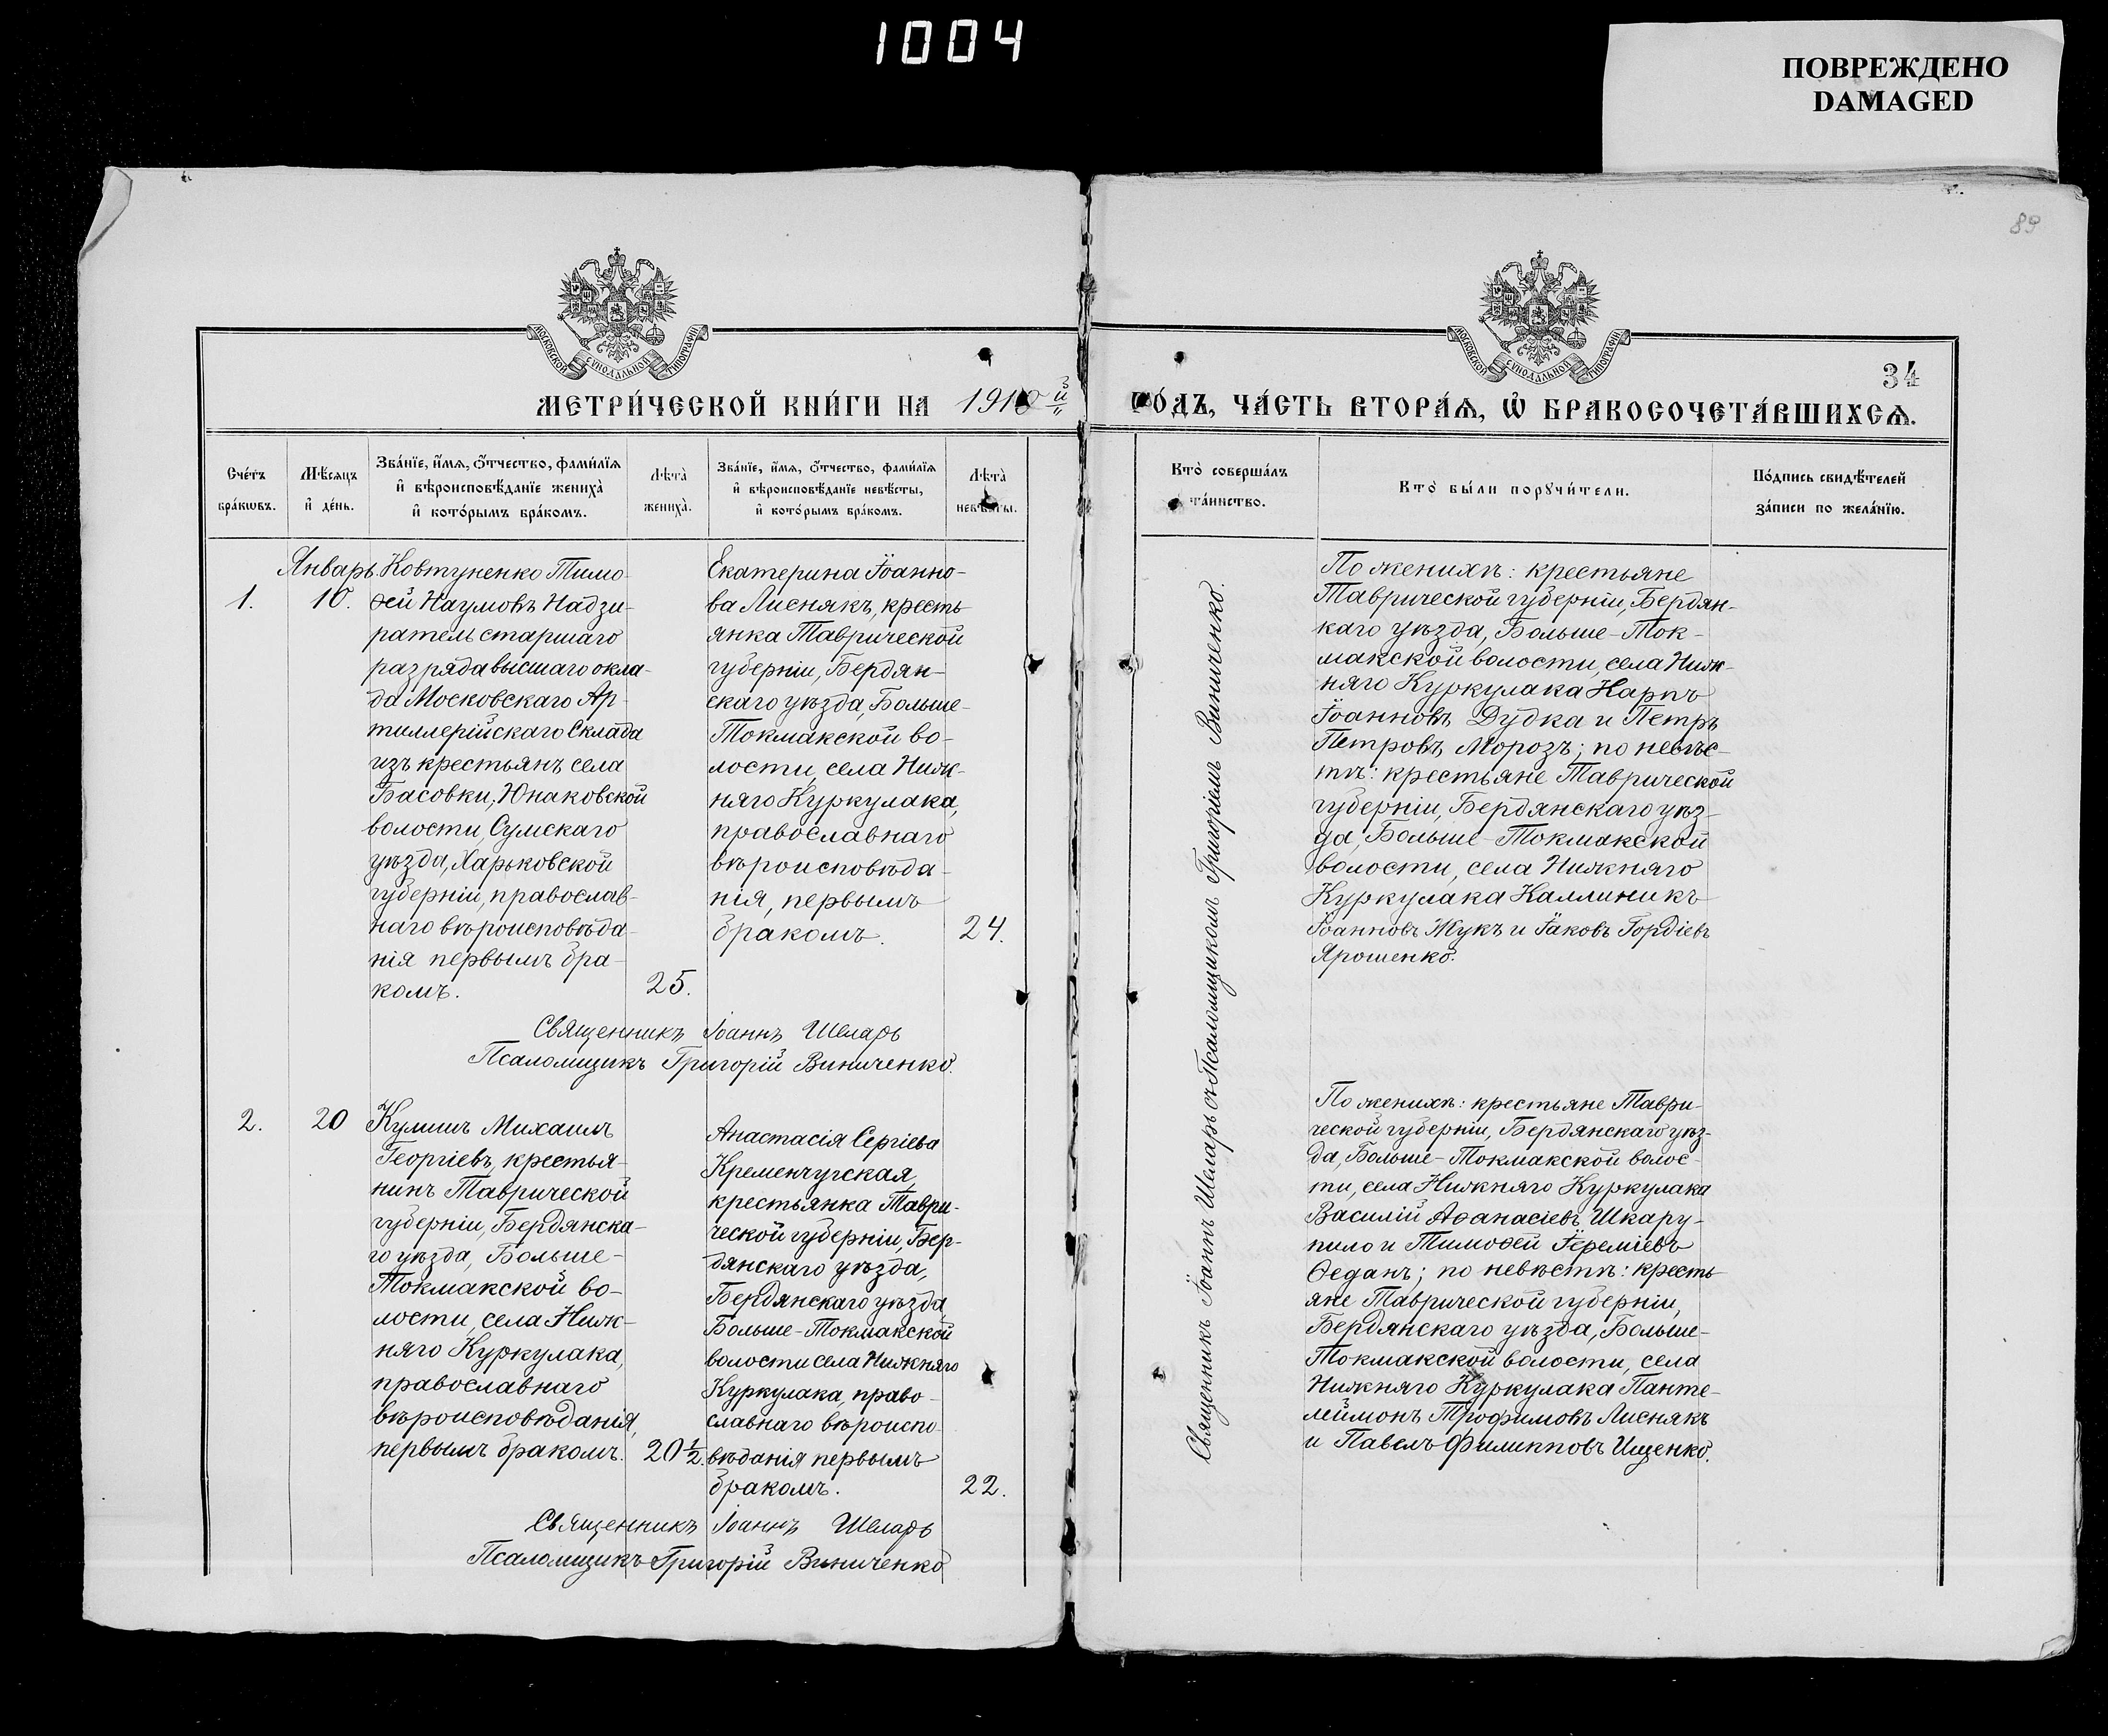 1004
ПОВРЕЖДЕНО
DAMAGED
89
МОСКОВСКОЙ СѴНОДАЛЬНОЙ ТИПОГРАФІИ
МОСКОВСКОЙ СѴНОДАЛЬНОЙ ТИПОГРАФІИ
34
МЕТРИ́ЧЕСКОЙ КНИ́ГИ НА 191 й
ГО́ДЪ, ЧА́СТЬ ВТОРА́Ѧ, Ѡ҆ БРАКОСОЧЕТА́ВШИХСѦ.
Сче́тъ
бра́кѡвъ.
Мѣ́сяцъ
и҆ де́нь.
Зва́нїе, и҆́мѧ, ѻ҆́тчество, фами́лїѧ
и҆ вѣроисповѣ́данїе жениха̀
и҆ кото́рымъ бра́комъ.
Лѣ́та̀
жениха̀.
Зва́нїе, и҆́мѧ, ѻ҆́тчество, фами́лїѧ
и҆ вѣроисповѣ́данїе невѣ́сты,
и҆ кото́рымъ бра́комъ.
Лѣ́та̀
невѣ́сты.
Кто̀ соверша́лъ
та́инство.
Кто̀ бы́ли порꙋчи́тели.
По́дпись свидѣ́телей
за́писи по жела́нїю.
Январь
1.
10.
Ковтуненко Тимо-
ѳей Наумовъ Надзи-
ратель старшаго
разряда высшаго окла-
да Московскаго Ар-
тиллерійскаго Склада
изъ крестьянъ села
Басовки, Юнаковской
волости, Сумскаго
уѣзда, Харьковской
губерніи, православ-
наго вѣроисповѣда-
нія первымъ бра-
комъ.
25.
Екатерина Іоанно-
ва Лиснякъ, кресть
янка Таврической
губерніи, Бердян-
скаго уѣзда, Больше-
Токмакской во-
лости, села Ниж-
няго Куркулака,
православнаго
вѣроисповѣда-
нія, первымъ
бракомъ.
24.
Священникъ Іоаннъ Шеларь
Псаломщикъ Григорій Виниченко.
Священникъ Іоаннъ Шеларь съ Псаломщикомъ Григоріемъ Виниченко.
По женихѣ: крестьяне
Таврической губерніи, Бердян-
каго уѣзда, Больше-Ток-
макской волости, села Ниж-
няго Куркулака Карпъ
Іоанновъ Дудка и Петръ
Петровъ Морозъ; по невѣс-
тѣ: крестьяне Таврической
губерніи, Бердянскаго уѣз-
да, Больше-Токмакской
волости, села Нижняго
Куркулака Каллиникъ
Іоанновъ Жукъ и Іаковъ Гордіевъ
Ярошенко.
2.
20
Кулишъ Михаилъ
Георгіевъ, крестья-
нинъ Таврической
губерніи, Бердянска-
го уѣзда, Больше-
Токмакской во-
лости, села Ниж-
няго Куркулака,
православнаго
вѣроисповѣданія,
первымъ бракомъ.
20½.
Анастасія Сергіева
Кременчугская,
крестьянка Таври-
ческой губерніи, Бер-
дянскаго уѣзда,
Бердянскаго уѣзда
Больше-Токмакской
волости села Нижняго
Куркулака, право-
славнаго вѣроиспо-
вѣданія первымъ
бракомъ.
22.
Священникъ Іоаннъ Шеларь
Псаломщикъ Григорій Виниченко
По женихѣ: крестьяне Таври-
ческой губерніи, Бердянскаго уѣз-
да, Больше-Токмакской волос-
ти, села Нижняго Куркулака
Василій Аѳанасіевъ Шкару-
пило и Тимоѳей Іереміевъ
Ѳеданъ; по невѣстѣ: кресть-
яне Таврической губерніи,
Бердянскаго уѣзда, Больше-
Токмакской волости, села
Нижняго Куркулака Панте-
леймонъ Трофимовъ Лиснякъ
и Павелъ Филипповъ Ищенко.